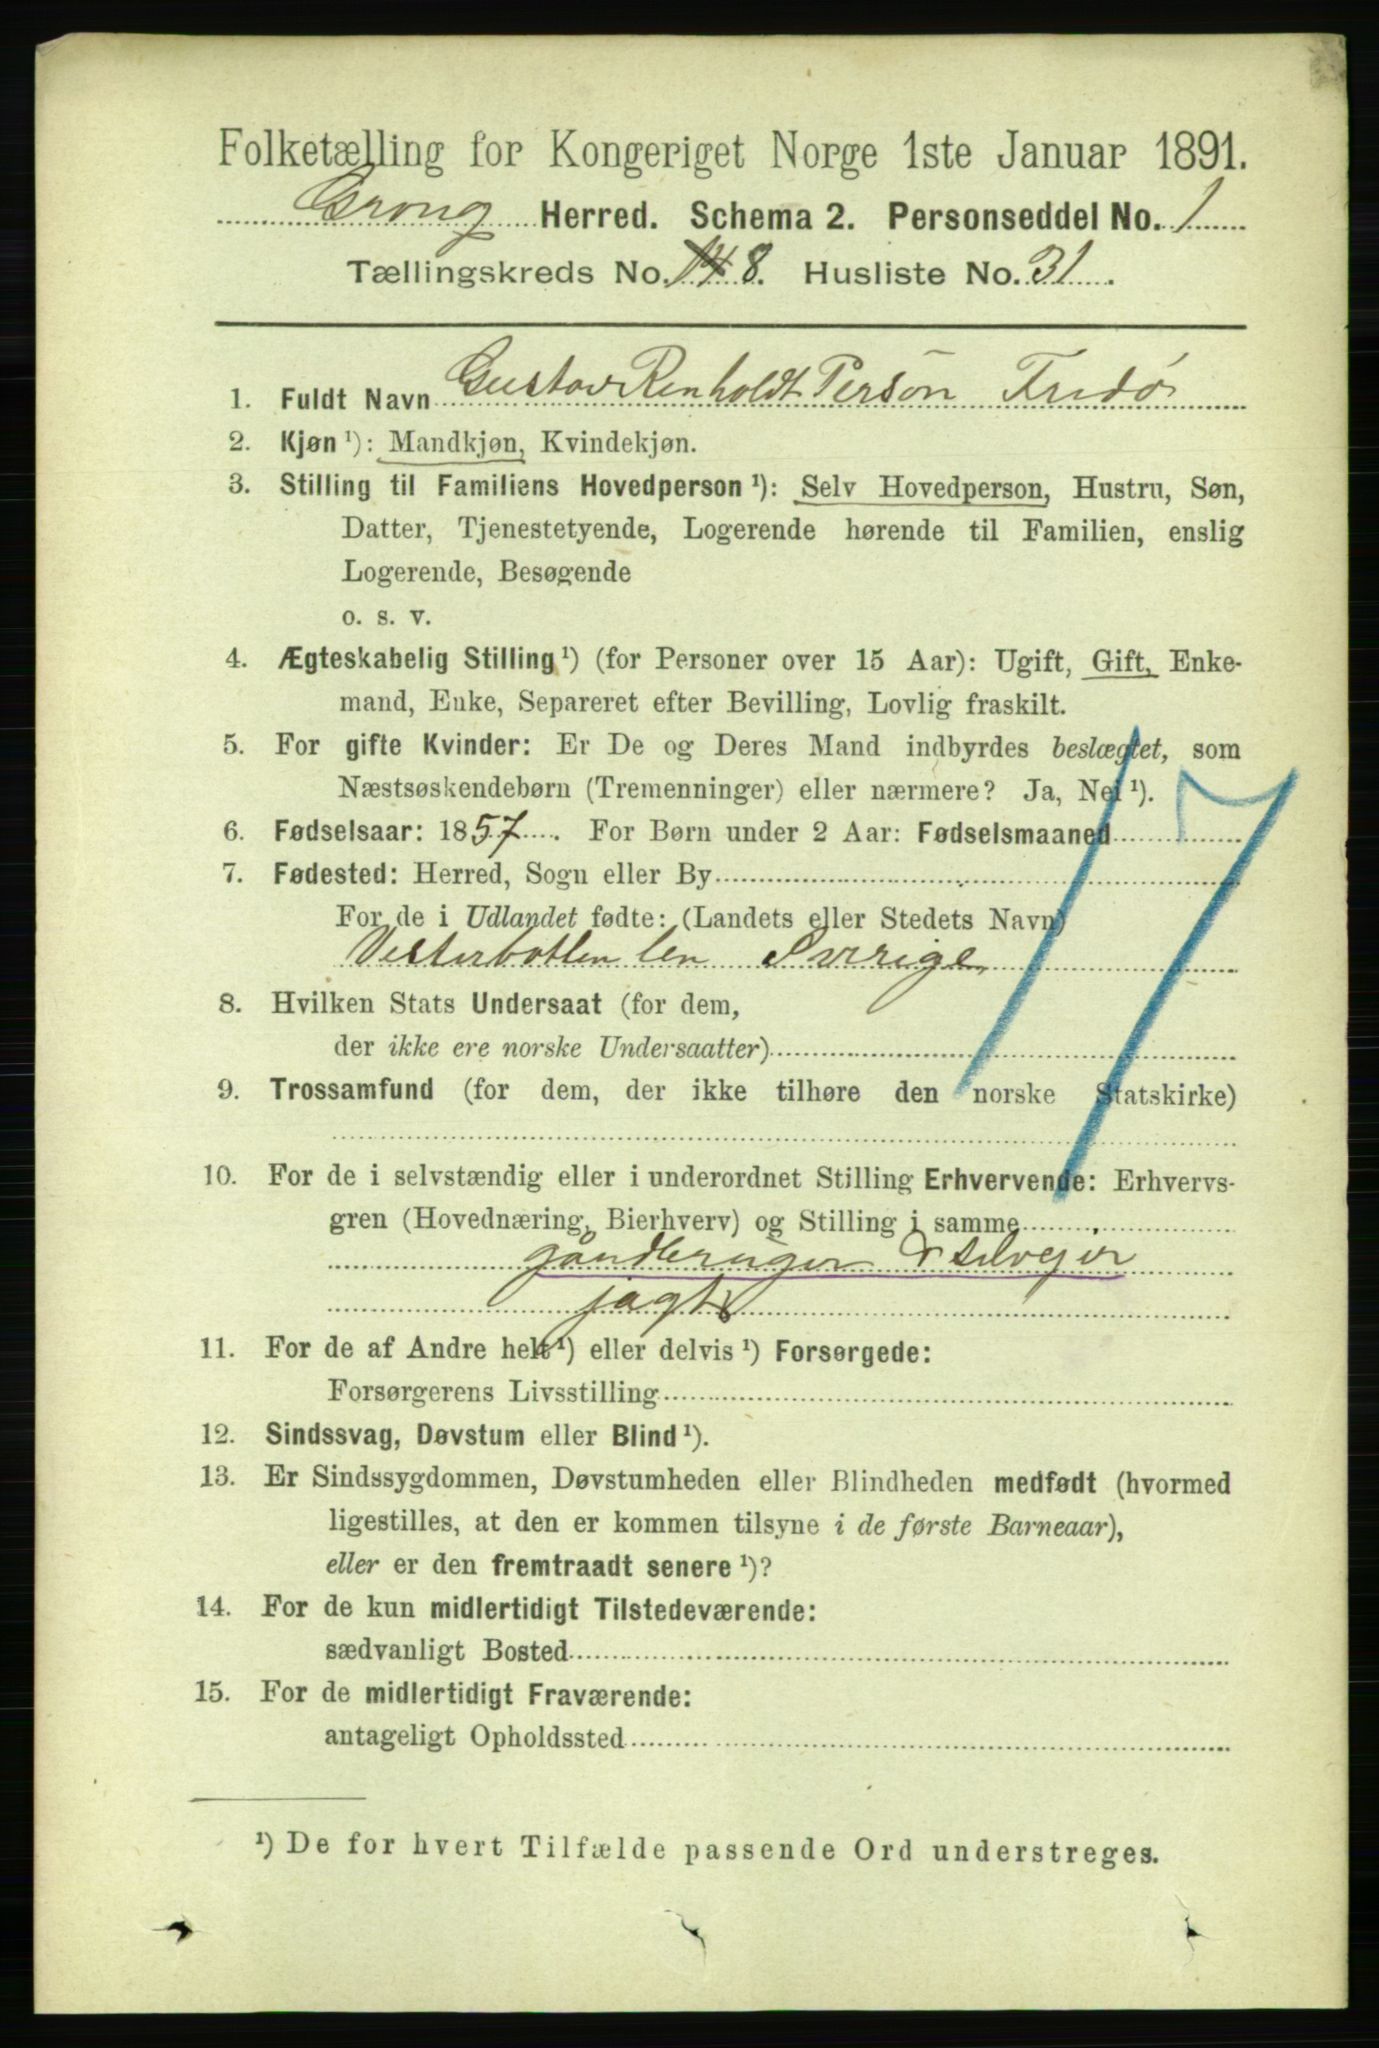 Folketælling for Kongeriget Norge 1ste Januar 1891.
Grong Herred. Schema 2. Personseddel No. 1
Tællingskreds No. 14 8. Husliste No. 31.
1. Fuldt Navn Gustav Renholdt Persön Fredø
2. Kjøn ¹): Mandkjøn, Kvindekjøn.
3. Stilling til Familiens Hovedperson ¹): Selv Hovedperson, Hustru, Søn,
Datter, Tjenestetyende, Logerende hørende til Familien, enslig
Logerende, Besøgende
o. s. v.
4. Ægteskabelig Stilling ¹) (for Personer over 15 Aar): Ugift, Gift, Enke-
mand, Enke, Separeret efter Bevilling, Lovlig fraskilt.
5. For gifte Kvinder: Er De og Deres Mand indbyrdes beslægtet, som
Næstsøskendebørn (Tremenninger) eller nærmere? Ja, Nei ¹).
6. Fødselsaar: 1857. For Børn under 2 Aar: Fødselsmaaned
7. Fødested: Herred, Sogn eller By
For de i Udlandet fødte: (Landets eller Stedets Navn)
Vesterbotten len Sverige
8. Hvilken Stats Undersaat (for dem,
der ikke ere norske Undersaatter)
9. Trossamfund (for dem, der ikke tilhøre den norske Statskirke)
17
10. For de i selvstændig eller i underordnet Stilling Erhvervende: Erhvervs-
gren (Hovednæring, Bierhverv) og Stilling i samme
gåudbruger & selvejer
jagt
11. For de af Andre helt ¹) eller delvis ¹) Forsørgede:
Forsørgerens Livsstilling
12. Sindssvag, Døvstum eller Blind ¹).
13. Er Sindssygdommen, Døvstumheden eller Blindheden medfødt (hvormed
ligestilles, at den er kommen tilsyne i de første Barneaar),
eller er den fremtraadt senere ¹)?
14. For de kun midlertidigt Tilstedeværende:
sædvanligt Bosted
15. For de midlertidigt Fraværende:
antageligt Opholdssted
¹) De for hvert Tilfælde passende Ord understreges.